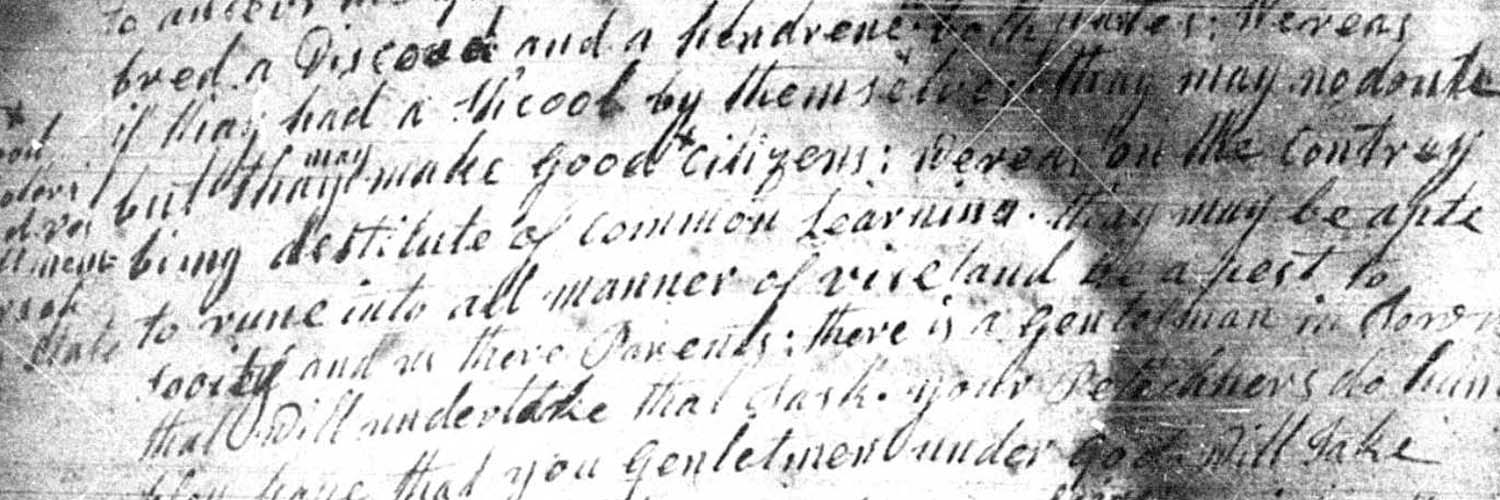 to
bred a Discood and a hendrenc both parties; Wereas
if thay had a Scool by themselves thay may nodoute
but thay may make good Citizens; Wereas on the Contrey
being destitute of Common Learning. thay may be apte
to rune into all manner of vice and be a pest to
Socity and us there Parents; there is a Gentelman in Town
that Will undertake that task. your Petichners do hum
hope that you Gentelmen under God Will take
State